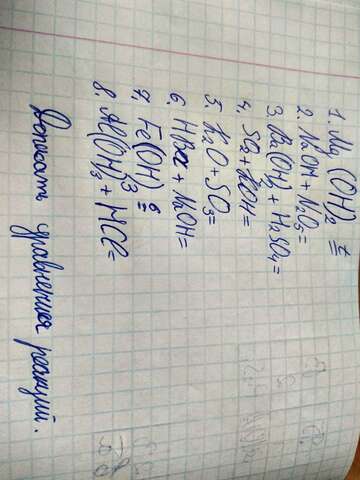 1. Mg(OH)₂ t=
2. NaOH + N₂O₅ =
3. Ba(OH)₂ + H₂SO₄ =
4. SO₂ + KOH =
5. K₂O + SO₃ =
6. + NaOH =
7. Fe(OH)₃ t=
8. Al(OH)₃ + HCl =
Дописать уравнения реакций.